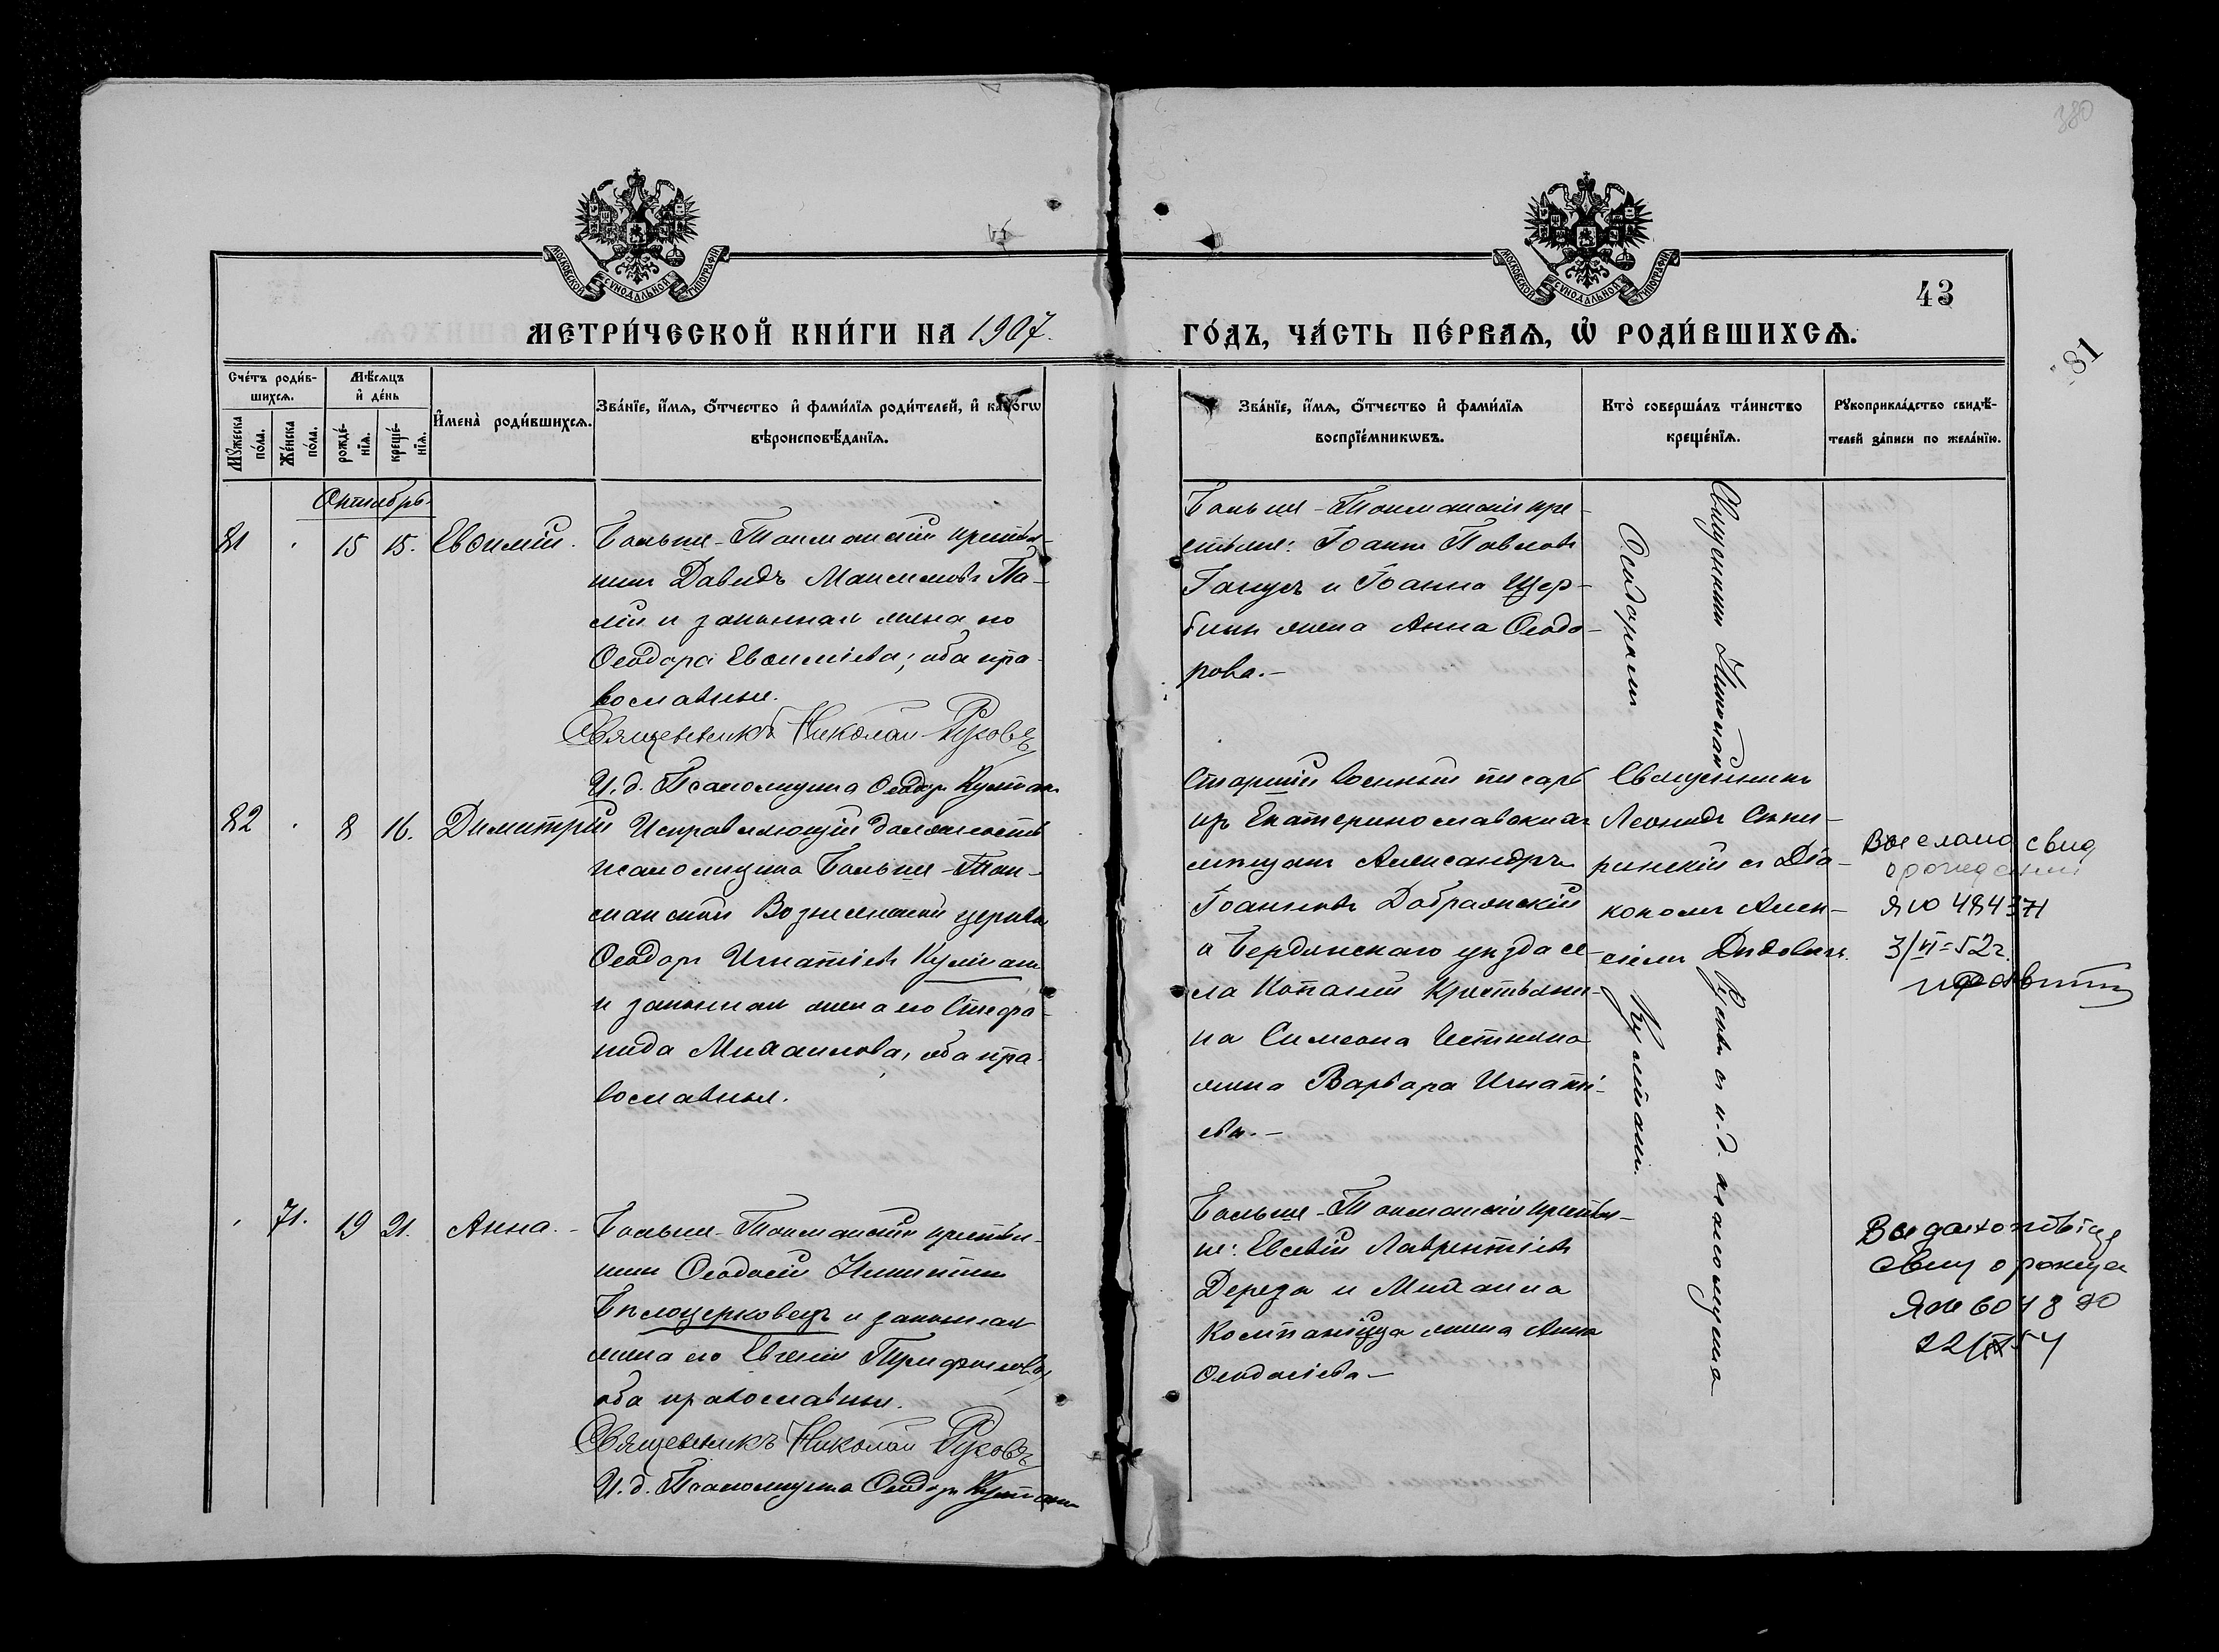 380
43
81
МОСКОВСКОЙ СѴНОДАЛЬНОЙ ТИПОГРАФІИ
МОСКОВСКОЙ СѴНОДАЛЬНОЙ ТИПОГРАФІИ
МЕТРИ́ЧЕСКОЙ КНИ́ГИ НА 1907.
ГО́ДЪ, ЧА́СТЬ ПЕ́РВАѦ, Ѡ҆ РОДИ́ВШИХСѦ.
Сче́тъ роди́в-
шихсѧ.
Мꙋ́жеска по́ла.
Же́нска по́ла.
Мѣ́сѧцъ
и҆ де́нь
рожде́-нїѧ.
креще́-нїѧ.
И҆мена̀ роди́вшихсѧ.
Зва́нїе, и҆́мѧ, ѻ҆́тчество и҆ фами́лїѧ роди́телей, и҆ како́гѡ
вѣроисповѣ́данїѧ.
Зва́нїе, и҆́мѧ, ѻ҆́тчество и҆ фами́лїѧ
воспрїе́мникѡвъ.
Кто̀ соверша́лъ та́инство
креще́нїѧ.
Рꙋкоприкла́дство свидѣ́-
телей за́писи по жела́нїю.
Октябрь
81 15 15. Евѳимій.
Больше-Токмакскій крестья-
нинъ Давидъ Максимовъ Па-
лій и законная жена его
Ѳеодора Евѳиміева; оба пра-
вославные.
Священникъ Николай Руковъ
И. д. Псаломщика Ѳеодоръ Култанъ
Больше-Токмакскіе кре-
стьяне: Іоаннъ Павловъ
Ганусъ и Іоанна Щер-
бины жена Анна Ѳеодо-
рова.-
Священникъ Николай Руковъ съ и. д. псаломщика
Ѳеодоромъ Култаномъ.
82 8 16. Димитрій
Исправляющій должность
псаломщика Больше-Ток-
макской Вознесенской церкви
Ѳеодоръ Игнатіевъ Култанъ
и законная жена его Стефа-
нида Михаилова, оба пра-
вославные.
Старшій военный писарь
изъ Екатеринославскихъ
мѣщанъ Александръ
Іоанновъ Добра́нскій
и Бердянскаго уѣзда се-
ла Копаней крестьяни-
на Симеона
жена Варвара Игнаті-
ева.-
Священникъ
Леонидъ
съ Діа-
кономъ Алек-
сіемъ
Выслано свид
о рождении
ЯЮ 484371
3/VI-52г.
71. 19 21. Анна.-
Больше-Токмакскій крестья-
нинъ Ѳеодосій Никитинъ
Бѣлоцерковецъ и законная
жена его Евгенія Трифиліова,
оба православные.
Священникъ Николай Руковъ
И. д. Псаломщика Ѳеодоръ Култанъ
Больше-Токмакскіе крестья-
не: Евсевій Лаврентіевъ
Дереза и Михаила
Компанійца жена Анна
Ѳеодосіева-
Выдано повтор
свид о рожден
601880
22/IX 54